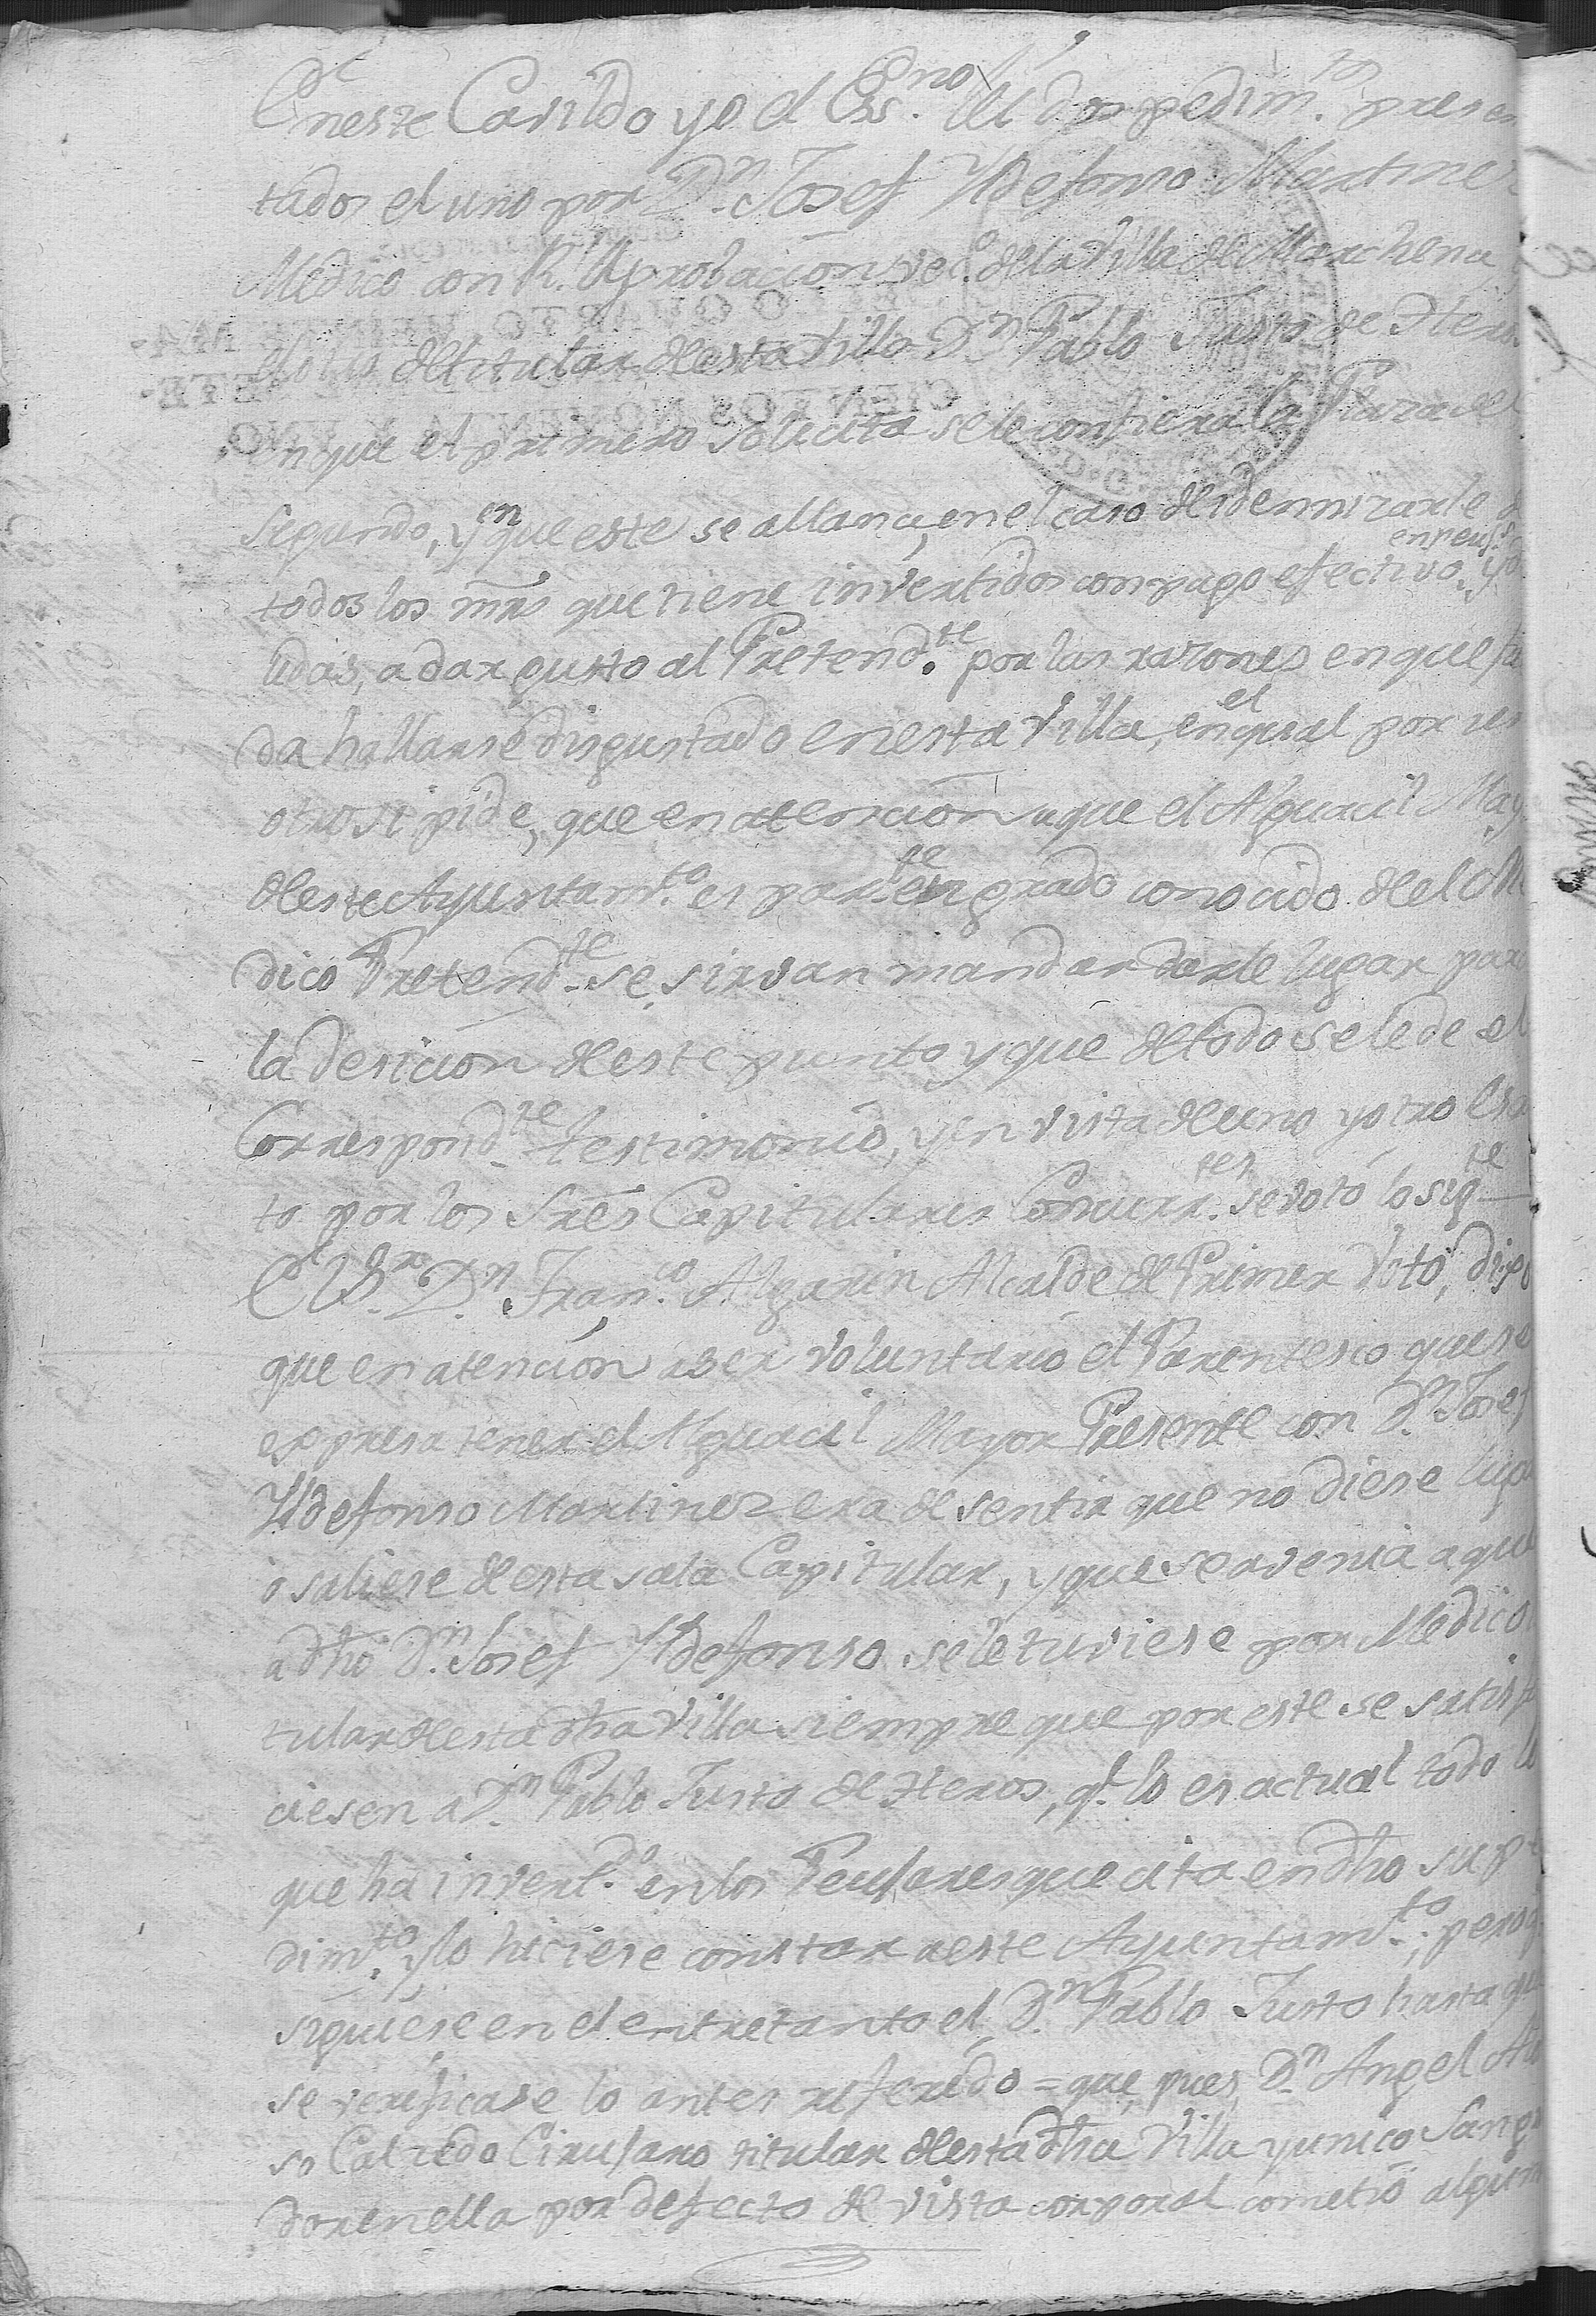 En este Cavildo yo el Ess.no leí dos pedim.tos presen
tados el uno por D.n Josef Yldefonso Martinez
Medico con R.l Aprobacion vec.o de la Villa de Marchena
el otro del titular de esta Villa D.n Pablo Justo de Heros
en que el primero solicita se le confiera la Plaza del
segundo, y en que este se allana, en el caso de idemnizarle d
todos los mrs que tiene invertidos con pago efectivo, en peuj.s y d
udas, a dar gusto al Pretend.te por las razones en que fu
da hallarse disgustado en esta Villa, en el qual por un
otrosi pide, que en atencion a que el Alguacil May.
de este Ayuntam.to es par.te en grado conocido de el Me
dico Pretend.te se sirvan mandar darle lugar par
la desicion de este punto y que de todo se le de el
Correspond.te testimonio, y en vista de uno y otro Escr
to por los Sres Capitulares Concurr.tes se votó lo sig.te
El S.r D.n Fran.co Algarin Alcalde de Primer Voto, dixo
que en atencion a ser voluntario el Parentesco que se
expresa tener el Alguacil Mayor Presente con D.n Josef
Yldefonso Martinez era de sentir que no diese lug
o saliese de esta sala Capitular, y que se avenia a que
a dho D.n Josef Yldefonso se le tuviese por Medico
tular de esta dha Villa siempre que por este se satisf
ciesen a D.n Pablo Justo de Heros, q.e lo es actual todo lo
que ha invert.do en los Peujares que cita en dho su p
dim.to y lo hiciese constar a este Ayuntam.to; pero q
siguiese en el entretanto el D.n Pablo Justo hasta qu
se verificase lo antes referido = que pues D.n Angel Al
so Calzedo Cirujano titular de esta dha Villa y unico Sangr
dor en ella por defecto de vista corporal cometió algun